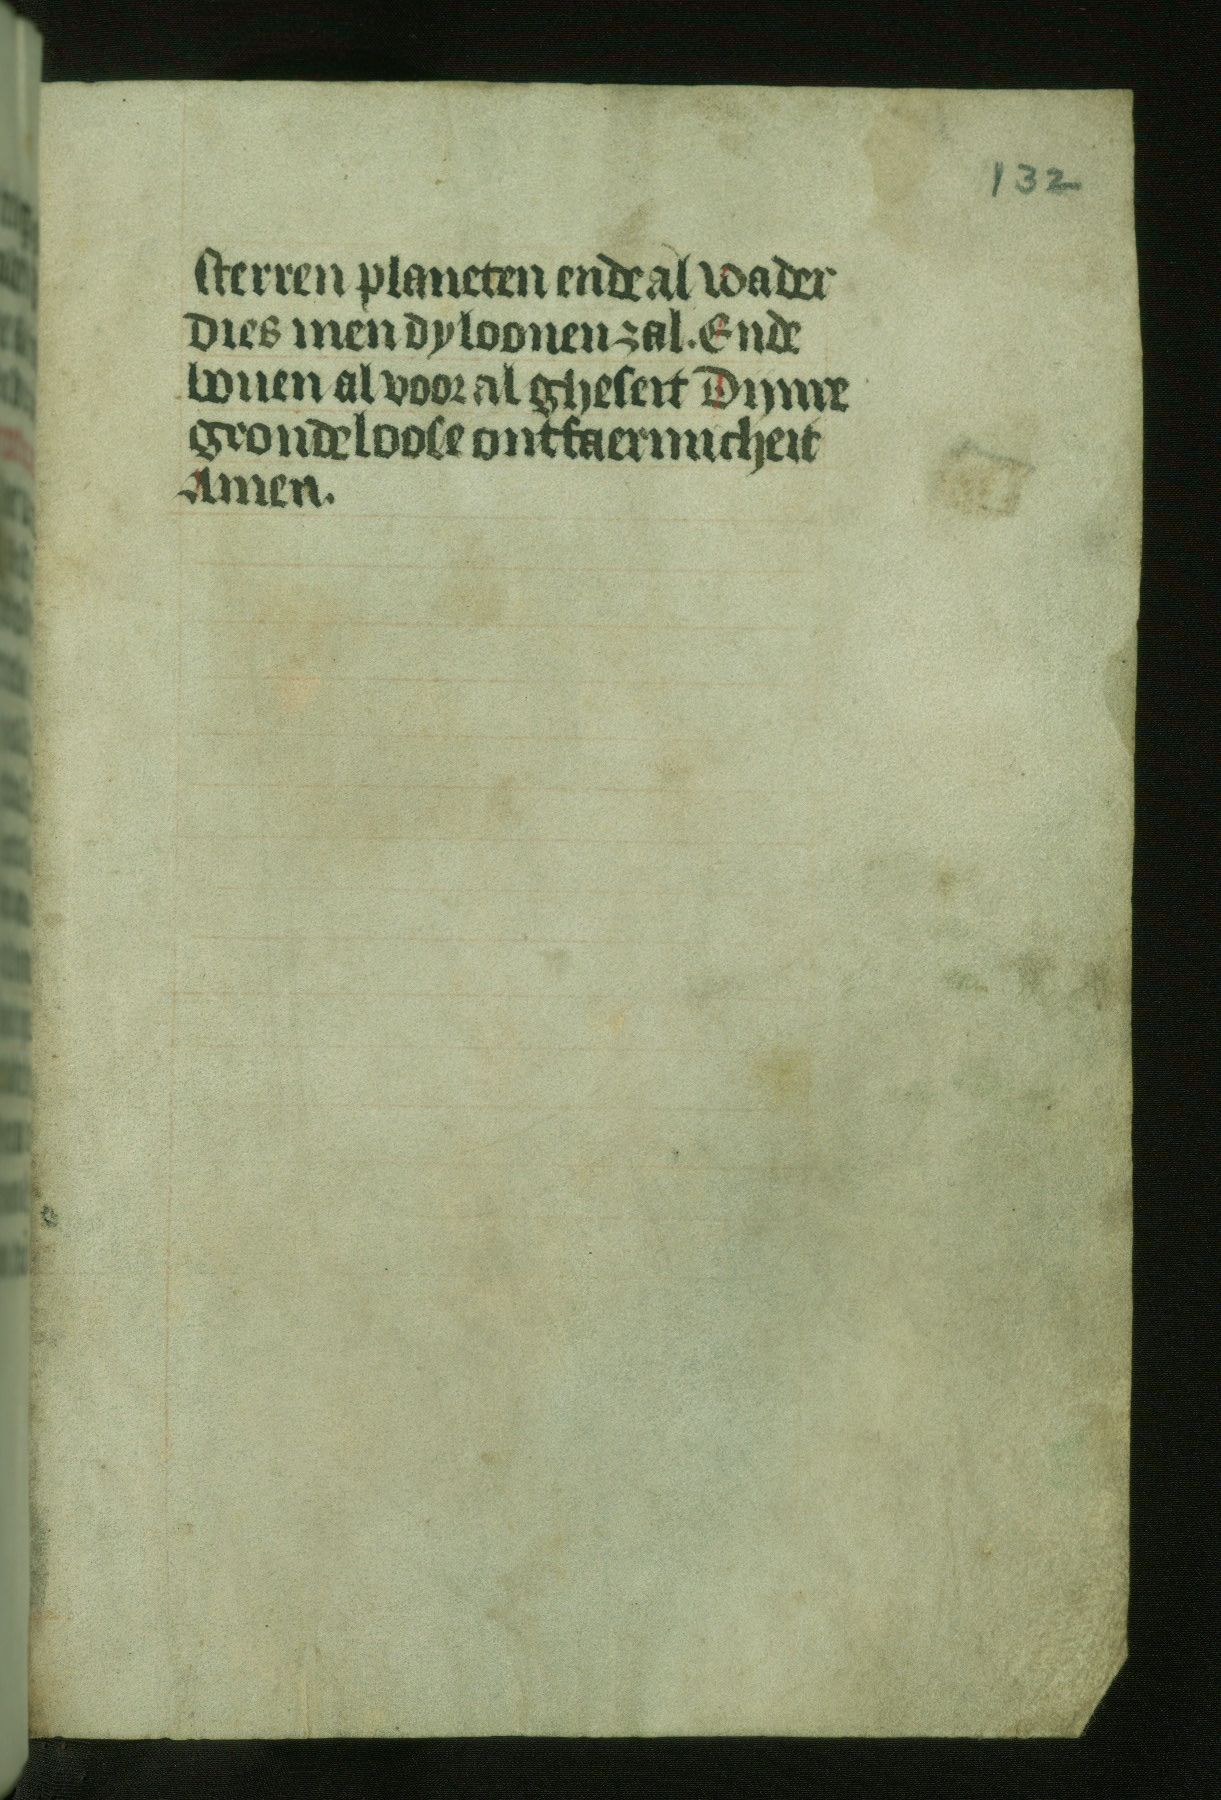 132
sterren planeten ende al wader
Dies men dy loonen zal. Ende
bouen al voor al gheseit Dijnre
grondeloose ontfaermicheit
Amen.